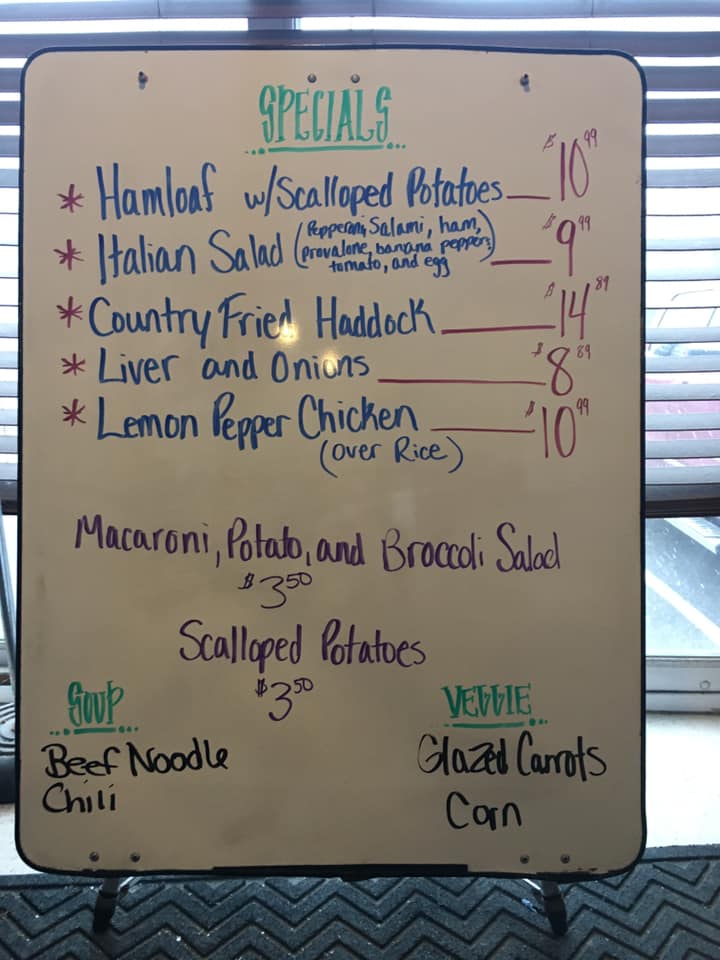 SPECIALS
* Hamloaf w/Scalloped Potatoes $10.99
* Italian Salad (Pepperoni, Salami, ham, provalone, banana peppers, tomato, and egg) $9.99
* Country Fried Haddock $14.89
* Liver and Onions $8.89
* Lemon Pepper Chicken $10.99
(over Rice)
Macaroni, Potato, and Broccoli Salad
$3.50
Scalloped Potatoes
$3.50
SOUP
Beef Noodle
Chili
VEGGIE
Glazed Carrots
Corn